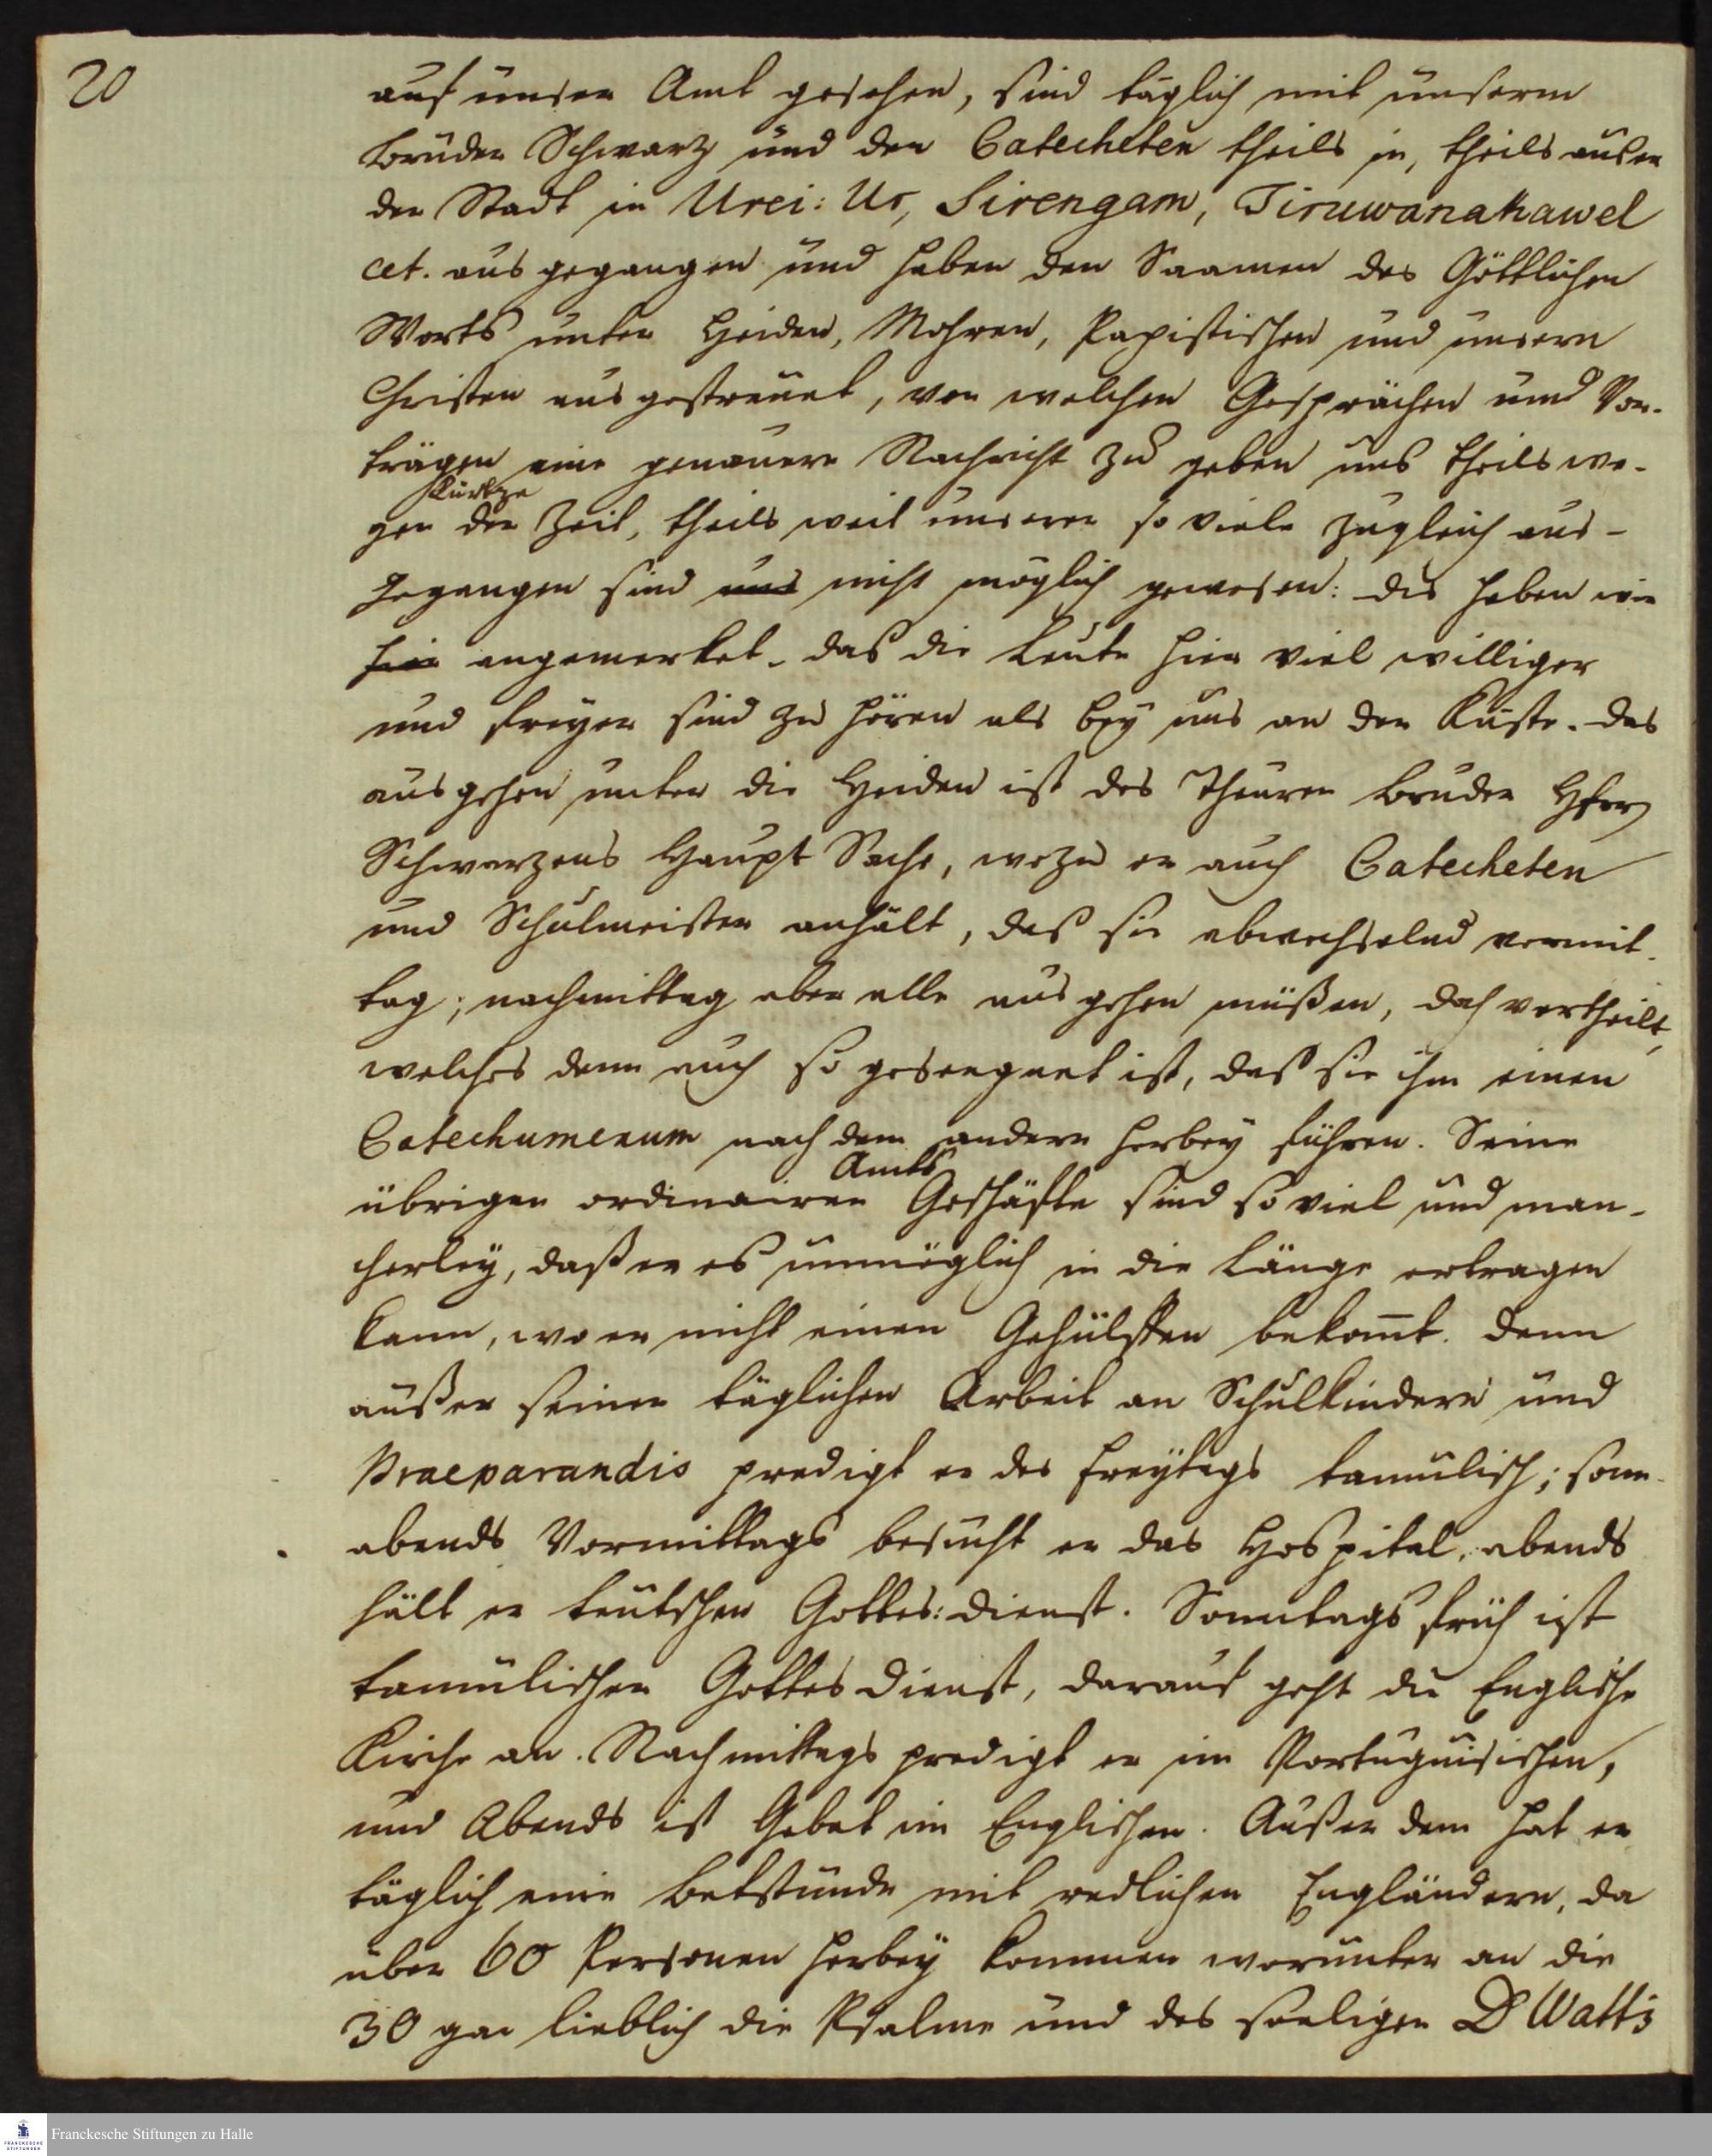 20
auf unser Amt gesehen, sind täglich mit unserm
Bruder Schwarz und den Catecheten theils in, theils außer
der Stadt in Urei: Ur, Sirengam, Tiruwanakawel
cet. ausgegangen und haben den Saamen des Göttlichen
Worts unter Heiden, Mohren, Papistischen und unsern
Christen ausgestreuet, von welchen Gesprächen und Vor-
trägen eine genauere Nachricht zu geben uns theils we-
kürtze
gen der Zeit, theils weil unserer so viele zugleich aus-
gegangen sind uns nicht möglich gewesen: das haben wir
hier angemerket. das die Leute hier viel williger
und freyer sind zu hören als bey uns an der Küste. das
ausgehen unter die Heiden ist des Theuren Bruder Herrn
Schwarzens Haupt Sache, wozu er auch Catecheten
und Schulmeister anhält, das sie abwechselnd vormit-
tag; nachmittag aber alle ausgehen müßen, doch vertheilt,
welches denn auch so gesegnet ist, das sie ihm einen
Catechumenum nach dem andern herbey führen. Seine
Amts
übrigen ordinairen Geschäfte sind so viel und man-
cherley, daß er es unmöglich in die Länge ertragen
kann, wo er nicht einen Gehülffen bekomt. denn
außer seiner täglichen Arbeit an Schulkindern und
Praeparandis predigt er des Freytags tamulisch; sonn-
abends Vormittags besucht er das Hospital, abends
hält er teutschen Gottes: dienst. Sonntags früh ist
tamulischer Gottesdienst, darauf geht die Englische
Kirche an. Nachmittags predigt er im Portuguisischen,
und Abends ist Gebet im Englischen. Außer dem hat er
täglich eine Betstunde mit redlichen Engländern, da
über 60 Personen herbey kommen worunter an die
30 gar lieblich die Psalme und des seeligen D Watts
Franckesche Stiftungen zu Halle
FRANCKESCHE STIFTUNGEN